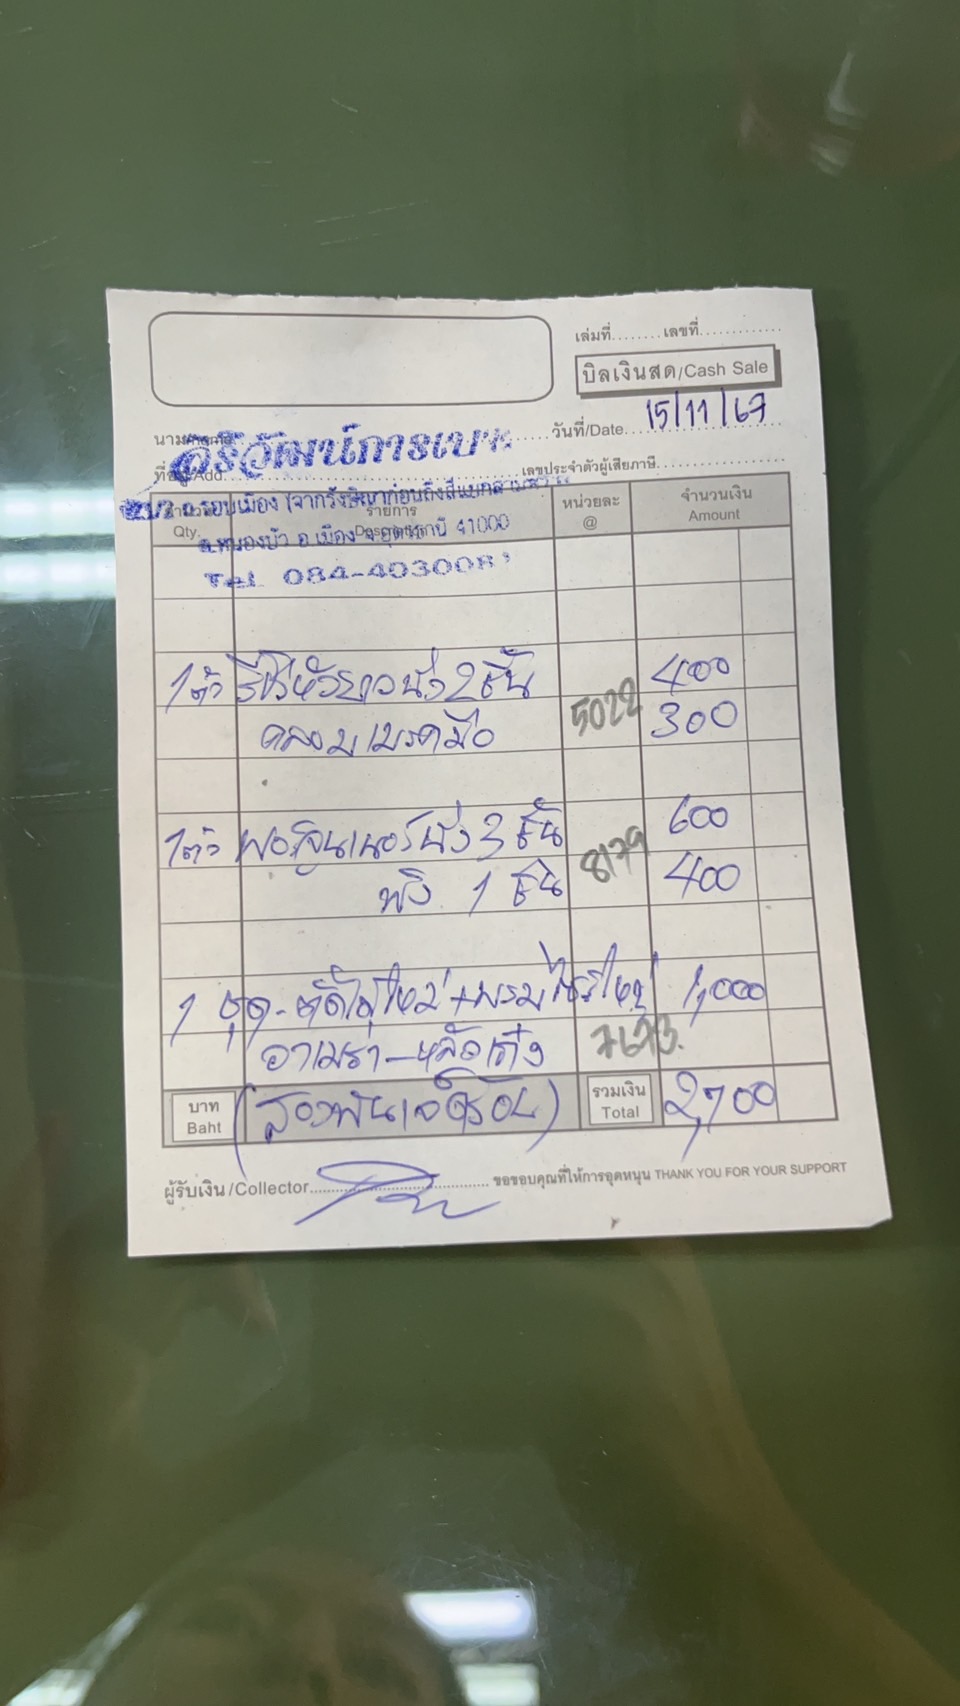 เล่มที่........เลขที่.............
บิลเงินสด/Cash Sale
นาม
วันที่/Date 15/11/67
ศิริวัฒน์การเบาะ
ที่อยู่/Add.
เลขประจำตัวผู้เสียภาษี
ถ.รอบเมือง (จากรังษิณาก่อนถึงสี่แยก
Qty.
รายการ
หน่วยละ
@
จำนวนเงิน
Amount
ต.หนองบัว อ.เมือง จ.อุดรธานี 41000
Tel. 084-403008
1 ตัว รีโว่หัวยาวนั่ง 2 ชิ้น 400
5022
คลอบเบรคมือ 300
1 ตัว ฟอร์จูนเนอร์นั่ง 3 ชิ้น 600
8179
พิง 1 ชิ้น 400
1 ชุด 1,000
บาท
Baht
(สองพันเจ็ดร้อย)
รวมเงิน
Total
2,700
ผู้รับเงิน/Collector
ขอขอบคุณที่ให้การอุดหนุน THANK YOU FOR YOUR SUPPORT